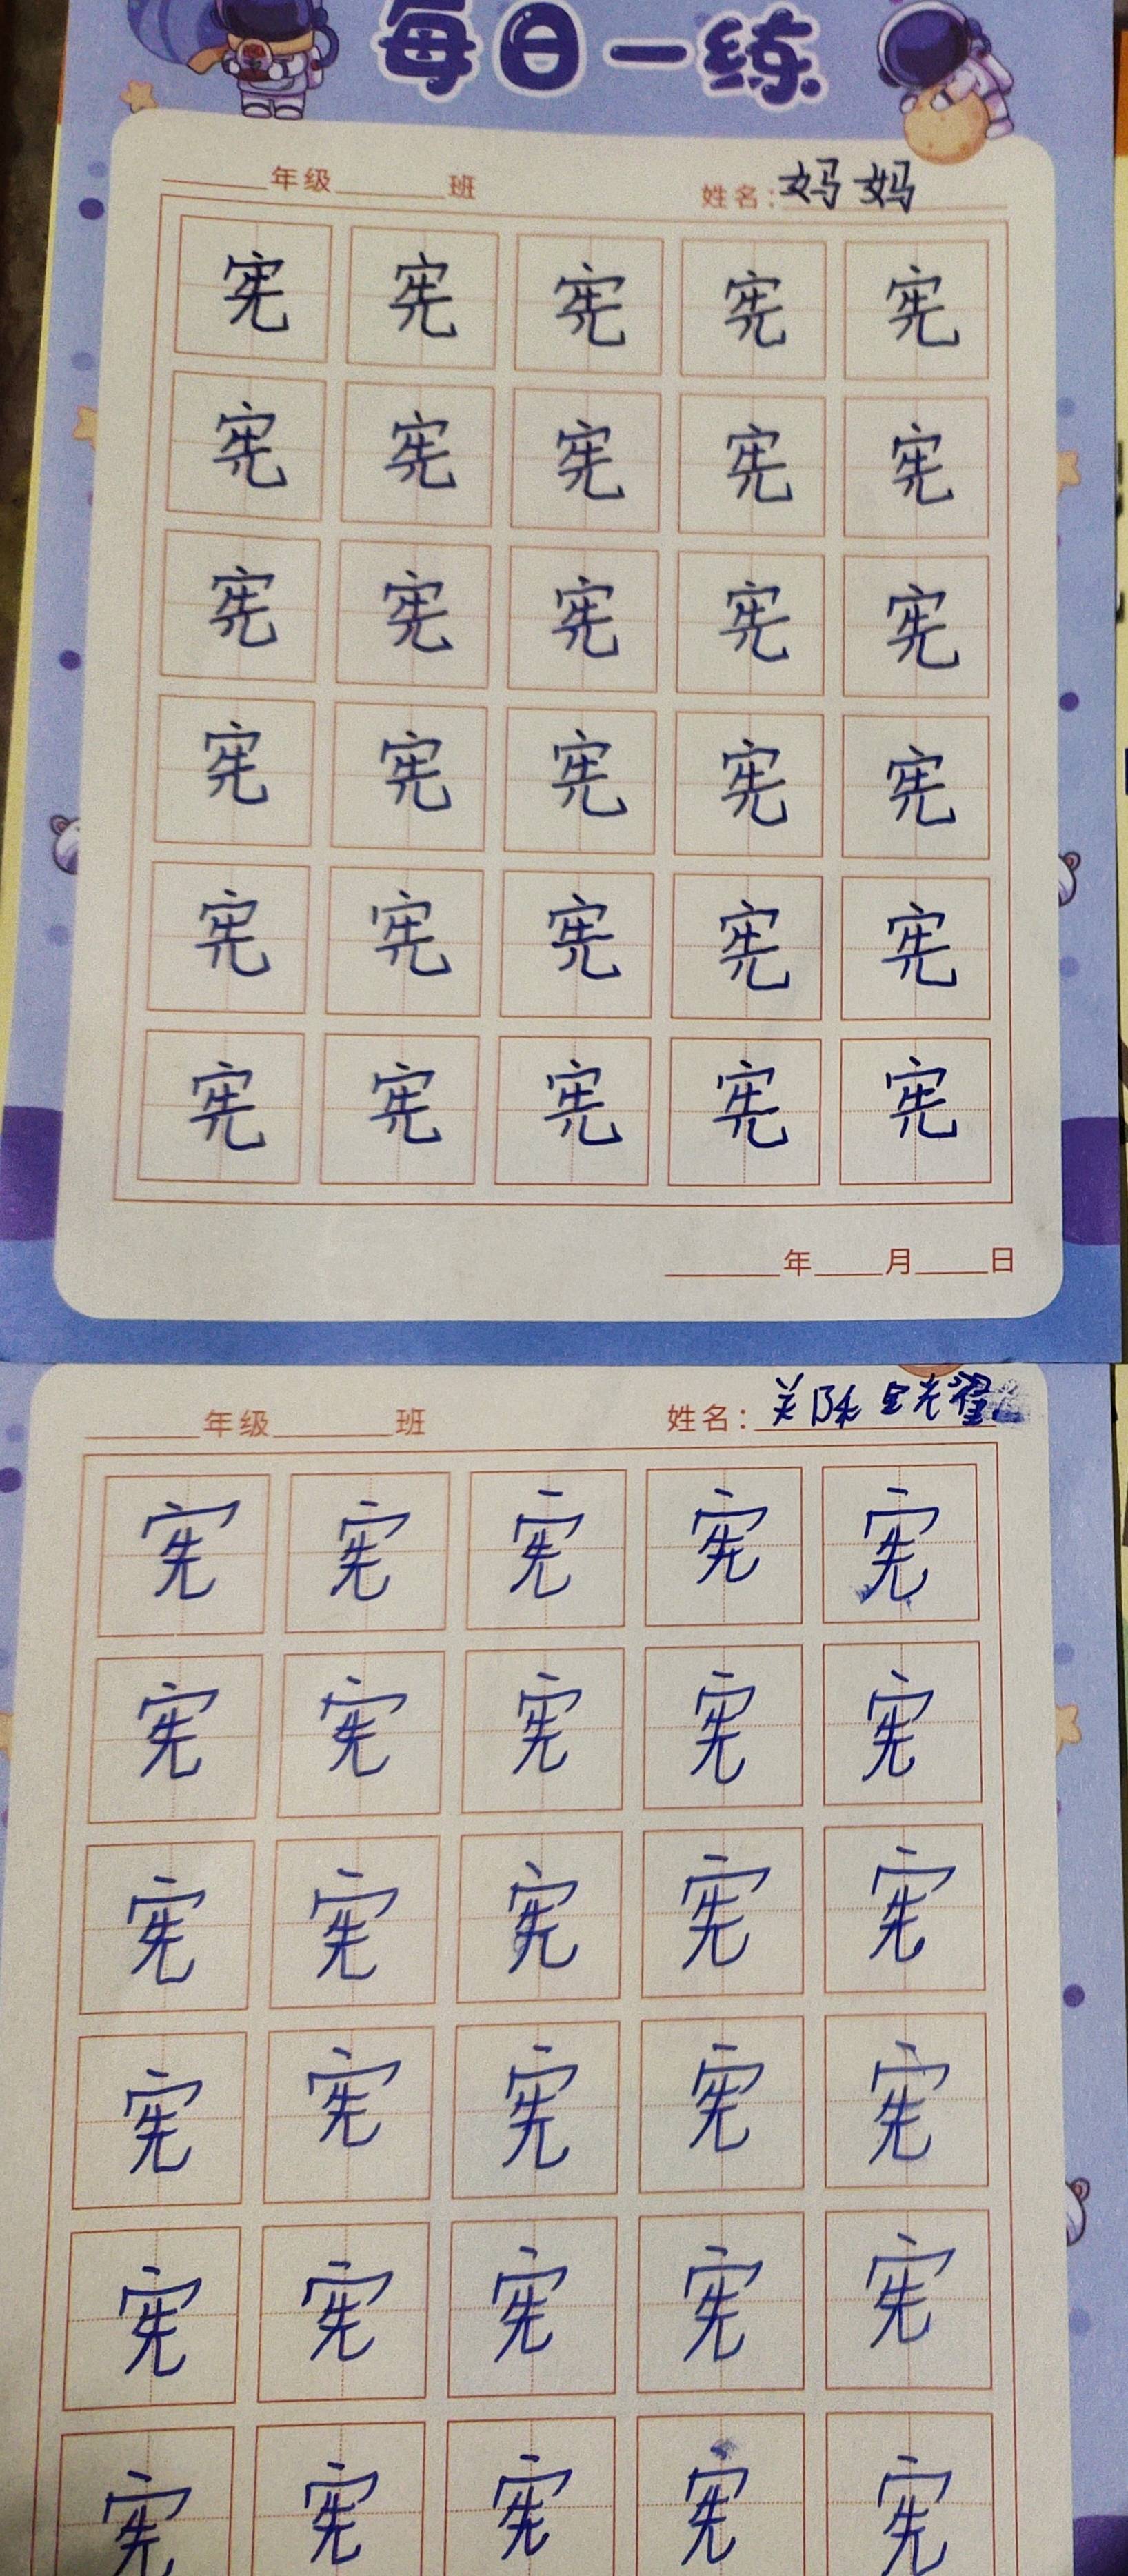 每日一练
年级 班 姓名：妈妈
宪 宪 宪 宪 宪
宪 宪 宪 宪 宪
宪 宪 宪 宪 宪
宪 宪 宪 宪 宪
宪 宪 宪 宪 宪
宪 宪 宪 宪 宪
年 月 日
年级 班 姓名：
宪 宪 宪 宪 宪
宪 宪 宪 宪 宪
宪 宪 宪 宪 宪
宪 宪 宪 宪 宪
宪 宪 宪 宪 宪
宪 宪 宪 宪 宪